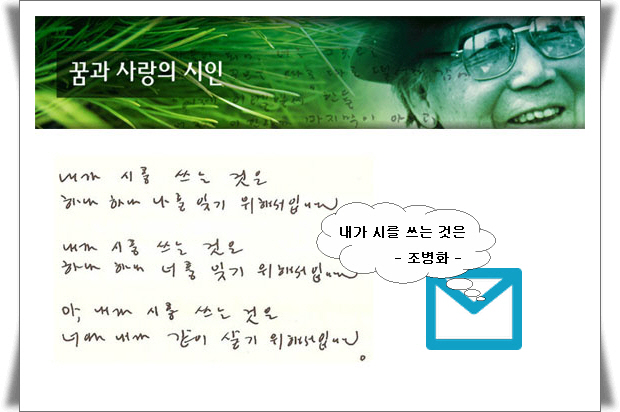 꿈과 사랑의 시인
마지막이
내가 시를 쓰는 것은
하나 하나 나를 잊기 위해서입니다
내가 시를 쓰는 것은
하나 하나 너를 잊기 위해서입니다
아, 내가 시를 쓰는 것은
너와 내가 같이 살기 위해서입니다.
내가 시를 쓰는 것은
- 조병화 -